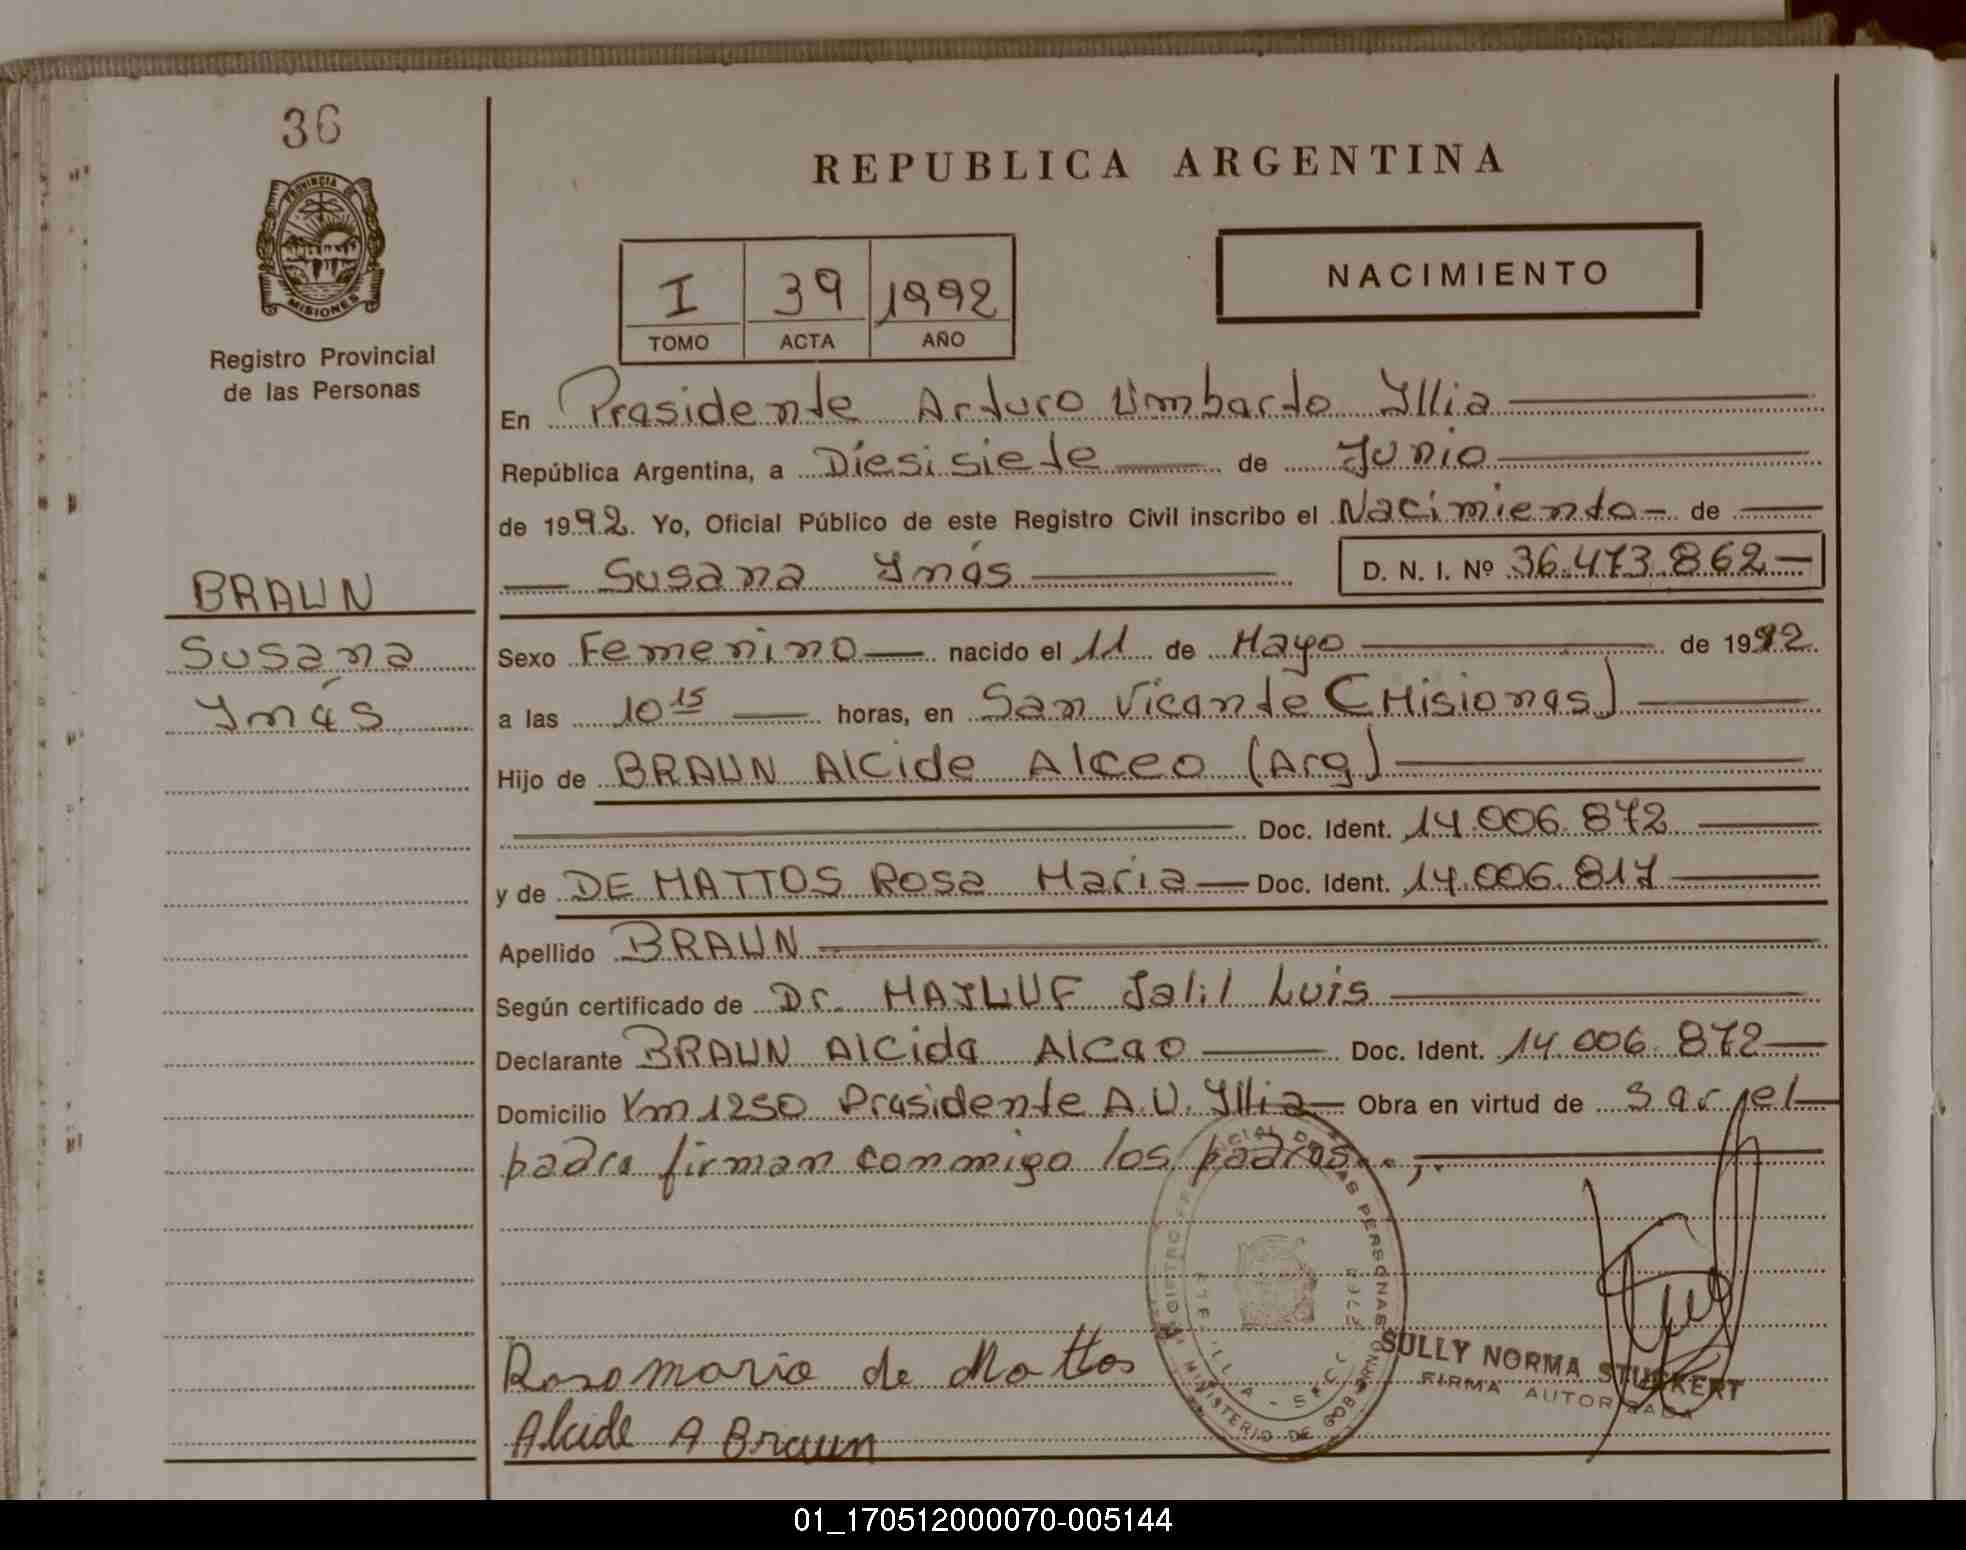 36
PROVINCIA DE
MISIONES
Registro Provincial
de las Personas
REPUBLICA ARGENTINA
I 39 1992
TOMO ACTA AÑO
NACIMIENTO
En Presidente Arturo Umberto Illia
República Argentina, a Diesisiete de Junio
de 1992. Yo, Oficial Público de este Registro Civil inscribo el Nacimiento de
Susana Inés D. N. I. Nº 36.473.862
BRAUN
Susana
Inés
Sexo Femenino nacido el 11 de Mayo de 1992.
a las 10 15 horas, en San Vicente (Misiones)
Hijo de BRAUN Alcide Alceo (Arg)
Doc. Ident. 14.006.872
y de DE MATTOS Rosa Maria Doc. Ident. 14.006.817
Apellido BRAUN
Según certificado de Dr. MAJLUF Jalil Luis
Declarante BRAUN Alcide Alceo Doc. Ident. 14.006.872
Domicilio Km 1250 Presidente A.U. Illia Obra en virtud de ser el
padre firman conmigo los padres..,.
Rosa maria de Mattos
Alcide A Braun
DE LAS PERSONAS
MINISTERIO DE GOBIERNO
SULLY NORMA STUCKERT
FIRMA AUTORIZADA
01_170512000070-005144